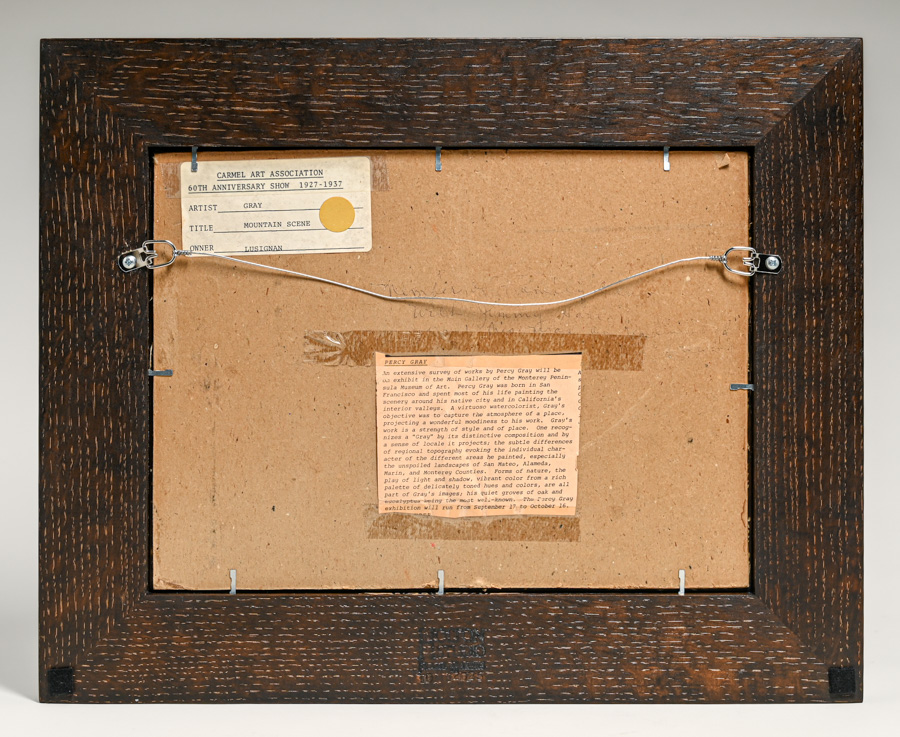 CARMEL ART ASSOCIATION
60TH ANNIVERSARY SHOW 1927-1937
ARTIST GRAY
TITLE MOUNTAIN SCENE
OWNER LUSIGNAN
PERCY GRAY
An extensive survey of works by Percy Gray will be
on exhibit in the Main Gallery of the Monterey Penin-
sula Museum of Art. Percy Gray was born in San
Francisco and spent most of his life painting the
scenery around his native city and in California's
interior valleys. A virtuoso watercolorist, Gray's
objective was to capture the atmosphere of a place,
projecting a wonderful moodiness to his work. Gray's
work is a strength of style and of place. One recog-
nizes a "Gray" by its distinctive composition and by
a sense of locale it projects; the subtle differences
of regional topography evoking the individual char-
acter of the different areas he painted, especially
the unspoiled landscapes of San Mateo, Alameda,
Marin, and Monterey Counties. Forms of nature, the
play of light and shadow, vibrant color from a rich
palette of delicately toned hues and colors, are all
part of Gray's images; his quiet groves of oak and
eucalyptus being the most well-known. The Percy Gray
exhibition will run from September to October 16.